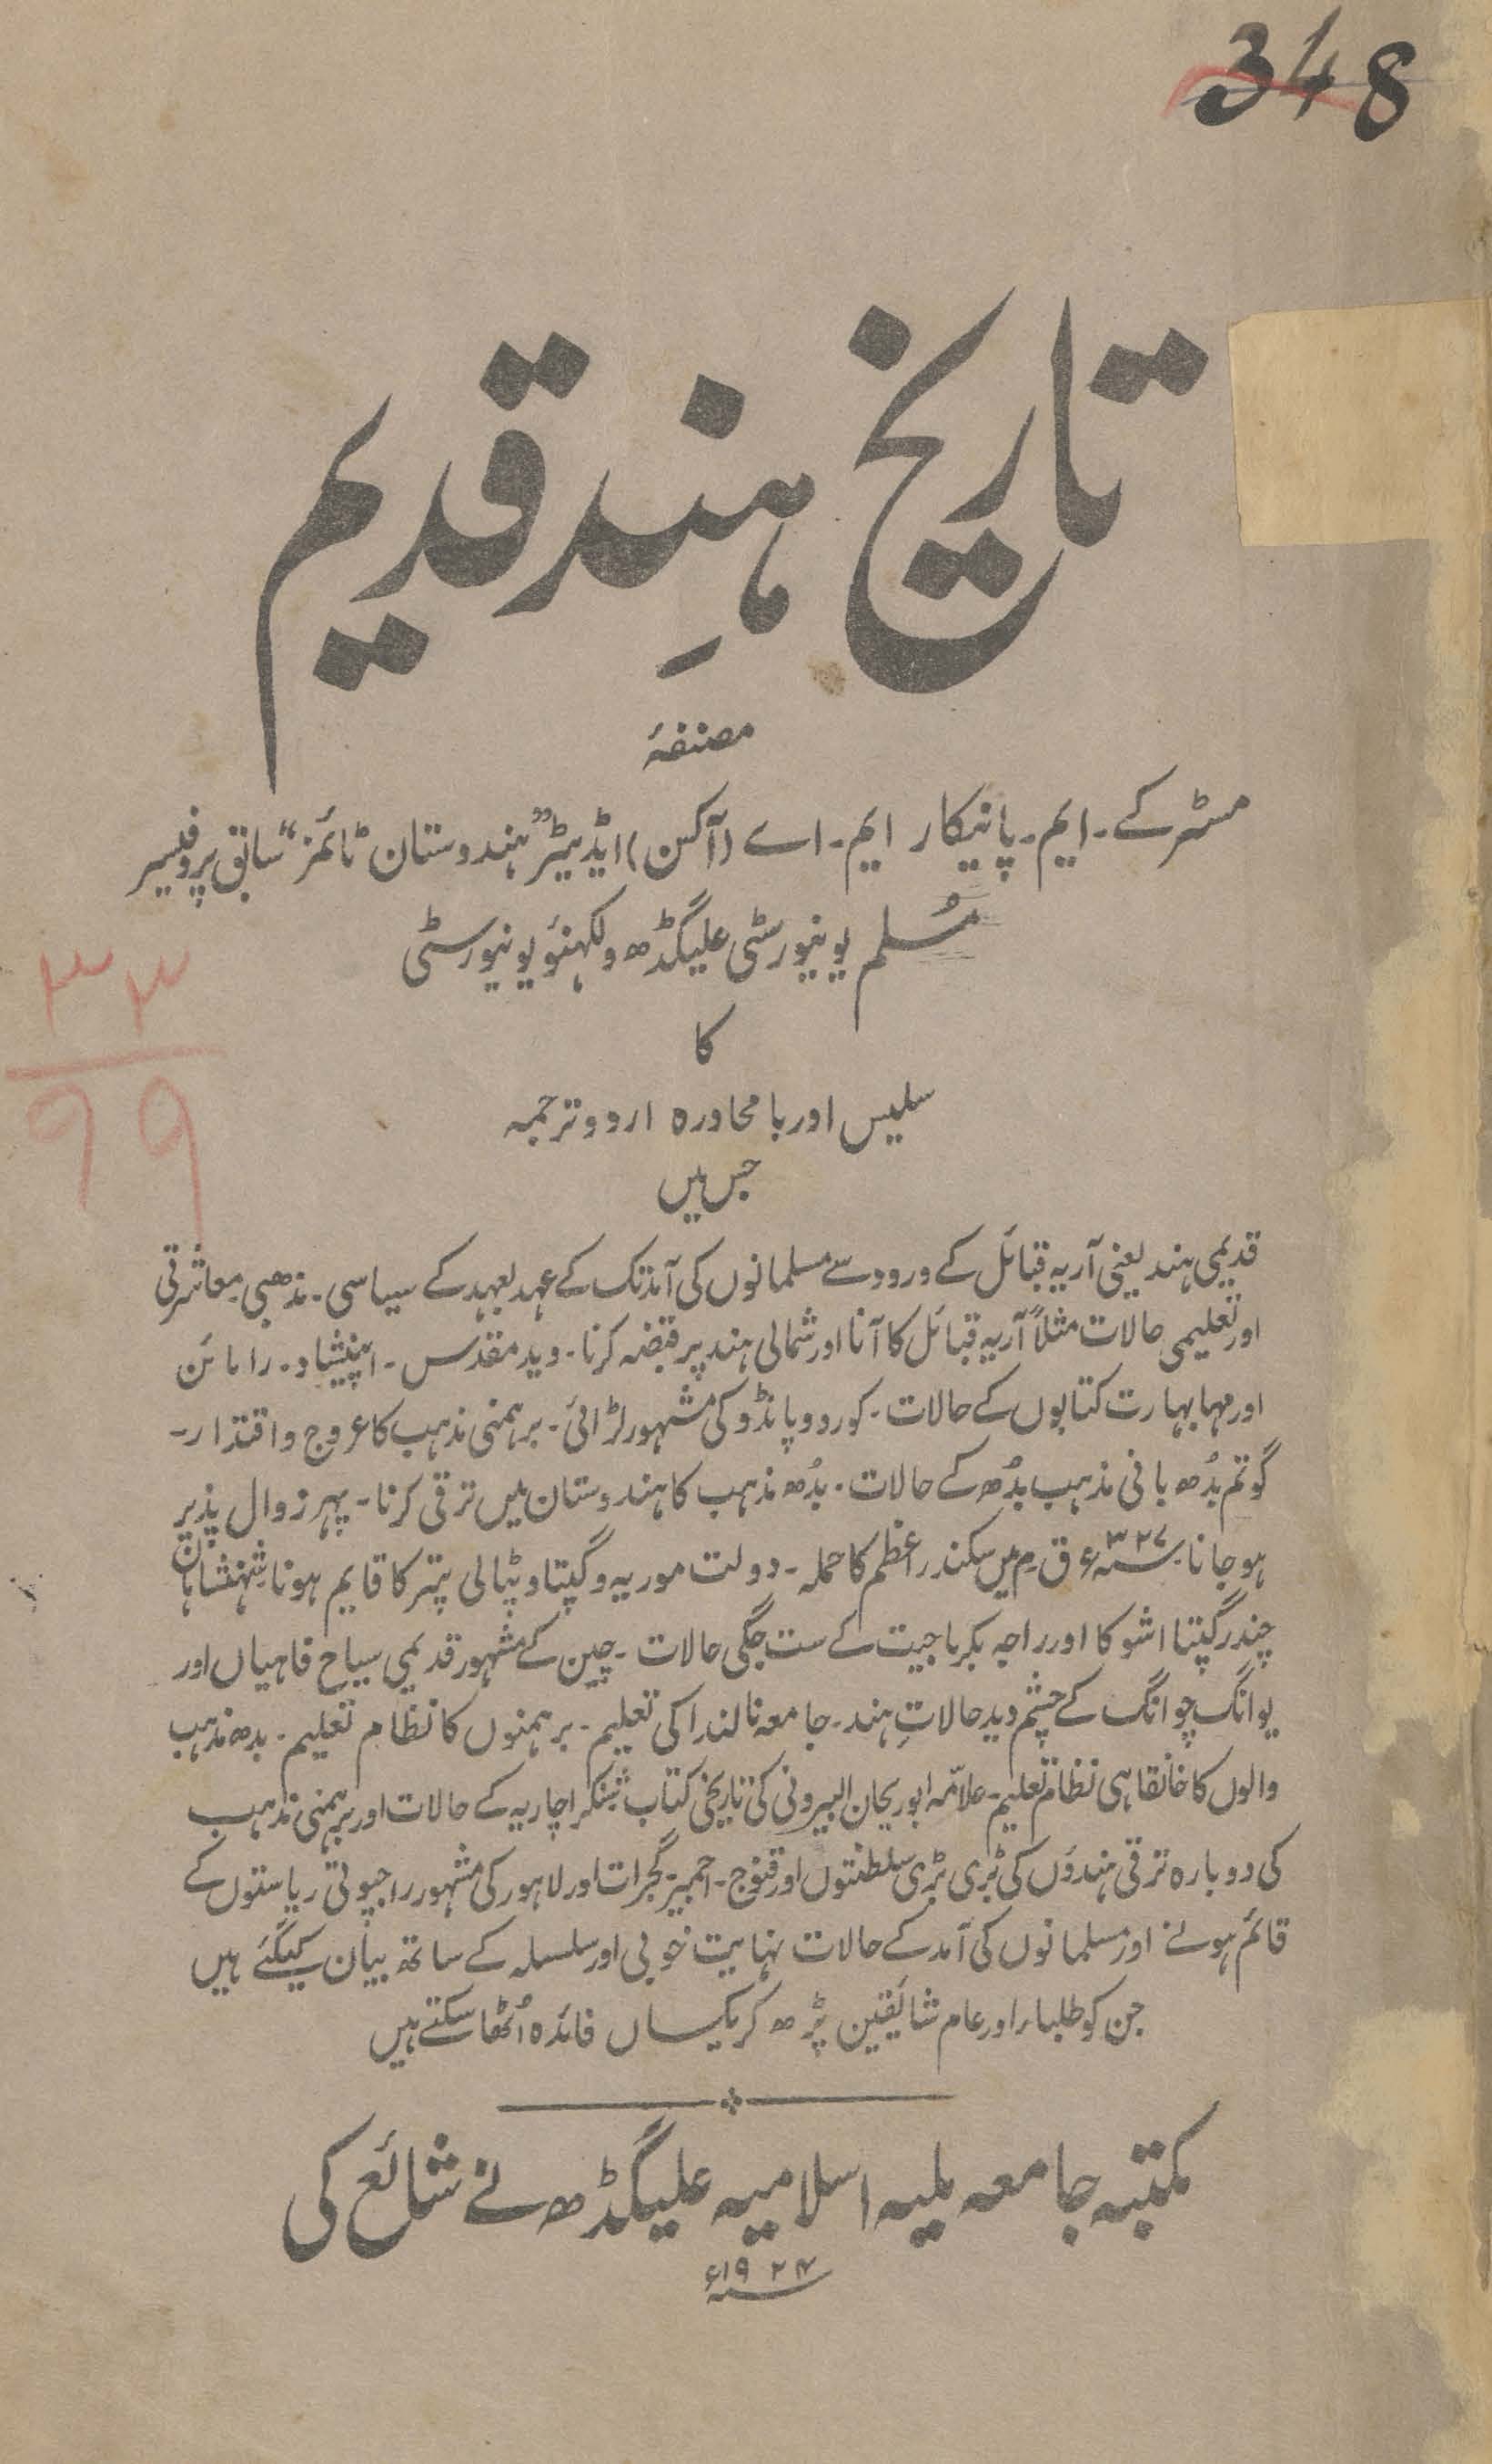 348
تاریخ ہندِ قدیم
مصنفۂ
مسٹر کے۔ ایم۔ پانیکار ایم۔ اے (آکسن) ایڈیٹر ”ہندوستان ٹائمز“ سابق پروفیسر
مُسلم یونیورسٹی علیگڈھ و لکہنؤ یونیورسٹی
کا
سلیس اور با محاورہ اردو ترجمہ
جس میں
قدیمی ہند یعنی آریہ قبائل کے ورود سے مسلمانوں کی آمد تک کے عہد بعہد کے سیاسی۔ مذھبی۔ معاشرتی
اور تعلیمی حالات مثلاً آریہ قبائل کا آنا اور شمالی ہند پر قبضہ کرنا۔ وید مقدس۔ اپنیشاد۔ رامائن
اور مہا بہارت کتابوں کے حالات۔ کورو و پانڈو کی مشہور لڑائی۔ برہمنی مذہب کا عروج و اقتدار۔
گوتم بدُھ بانی مذہب بدُھ کے حالات۔ بدُھ مذہب کا ہندوستان میں ترقی کرنا۔ پہر زوال پذیر
ہو جانا۔ ۳۲۷ سنہء ق م میں سکندر اعظم کا حملہ۔ دولت موریہ و گپتا و پٹالی پتر کا قایم ہونا شہنشاہان
چندر گپتا اشوکا اور راجہ بکرماجیت کے ست جگی حالات۔ چین کے مشہور قدیمی سیاح فاہیاں اور
یوانگ چوانگ کے چشم دید حالاتِ ہند۔ جامعہ نالندرا کی تعلیم۔ برہمنوں کا نظام تعلیم۔ بدھ مذہب
والوں کا خانقاہی نظام تعلیم۔ علاّمہ ابو ریحان البیرونی کی تاریخی کتاب۔ شنکر اچاریہ کے حالات اور برہمنی مذہب
کی دوبارہ ترقی ہندؤں کی بڑی بڑی سلطنتوں اور قنوج۔ اجمیر۔ گجرات اور لاہور کی مشہور راجپوتی ریاستوں کے
قائم ہونے اور مسلمانوں کی آمد کے حالات نہایت خوبی اور سلسلہ کے ساتھ بیان کیگئے ہیں
جن کو طلباء اور عام شایقین پڑھ کر یکساں فائدہ اُٹھا سکتے ہیں
مکتبہ جامعہ ملیہ اسلامیہ علیگڈھ نے شائع کی